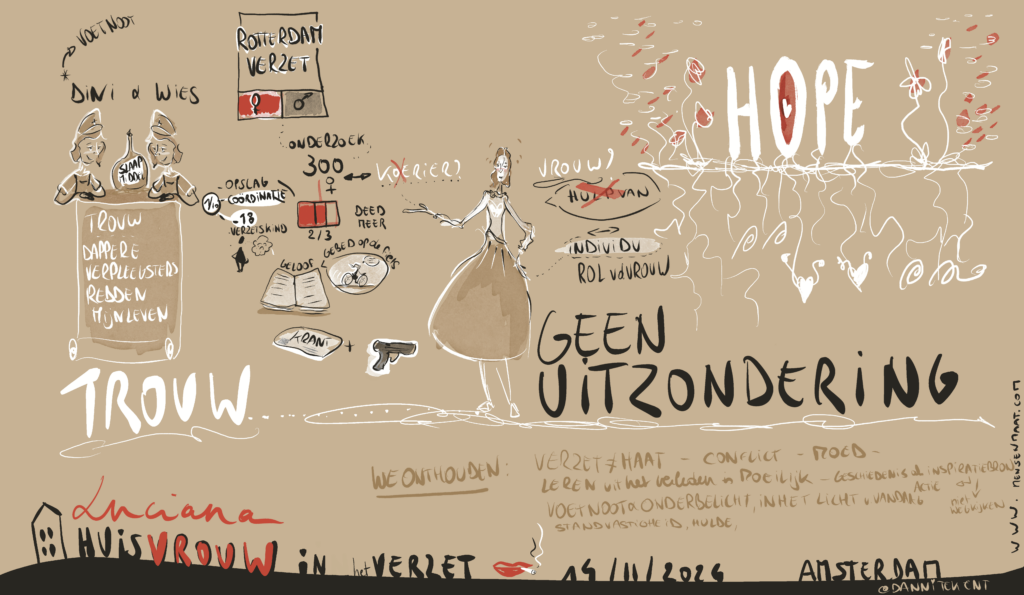 * VOETNOOT
DINI & WIES
SLAAP
MIDDEL
TROUW
DAPPERE
VERPLEEGSTERS
REDDEN
MIJN LEVEN
TROUW...
ROTTERDAM
VERZET
♀ ♂
ONDERZOEK
300
♀
OPSLAG
COORDINATIE
1/10
-18
VERZETSKIND
2/3
DEED
MEER
GELOOF
GEBED OP DE FIETS
KRANT +
KOERIER?
VROUW?
HULP VAN
INDIVIDU
ROL v/d VROUW
HOPE
GEEN
UITZONDERING
WE ONTHOUDEN:
VERZET ≠ HAAT - CONFLICT - MOED -
LEREN uit het verleden is MOEILIJK - GESCHIEDENIS als INSPIRATIEBRON
VOETNOOT & ONDERBELICHT, IN HET LICHT v VANDAAG ACTIE
niet
WEGKIJKEN
STANDVASTIGHEID, HULDE,
Luciana
HUISVROUW IN het VERZET
AMSTERDAM
@DANNITEKENT
WWW.MENSENMAAT.COM